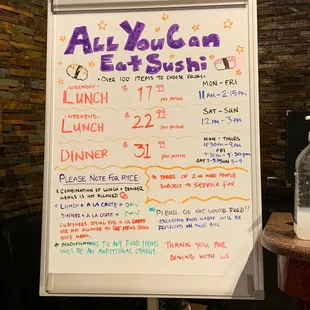 ALL YOU CAN
EAT SUSHI
• OVER 100 ITEMS TO CHOOSE FROM •
WEEKDAY:
LUNCH $17.99 per person
MON - FRI
11AM - 2:15PM
WEEKEND:
LUNCH $22.99 per person
SAT - SUN
12PM - 3PM
DINNER $31.99 per person
MON - THURS
4:30PM - 9PM
FRI
PLEASE NOTE FOR AYCE:
COMBINATION OF LUNCH + DINNER
MENUS IS NOT ALLOWED
LUNCH + A LA CARTE = OK
DINNER + A LA CARTE = OK
CUSTOMERS DOING FULL A LA CARTE
ARE NOT ALLOWED TO
AYCE MENU
MODIFICATIONS TO ANY FOOD ITEMS
WILL BE AN ADDITIONAL CHARGE
OF 2 OR MORE PEOPLE
SUBJECT TO SERVICE FEE
PLEASE DO NOT WASTE FOOD!!
EXCESSIVE FOOD WASTE WILL BE
REFLECTED ON YOUR BILL
THANK YOU FOR
DINING WITH US